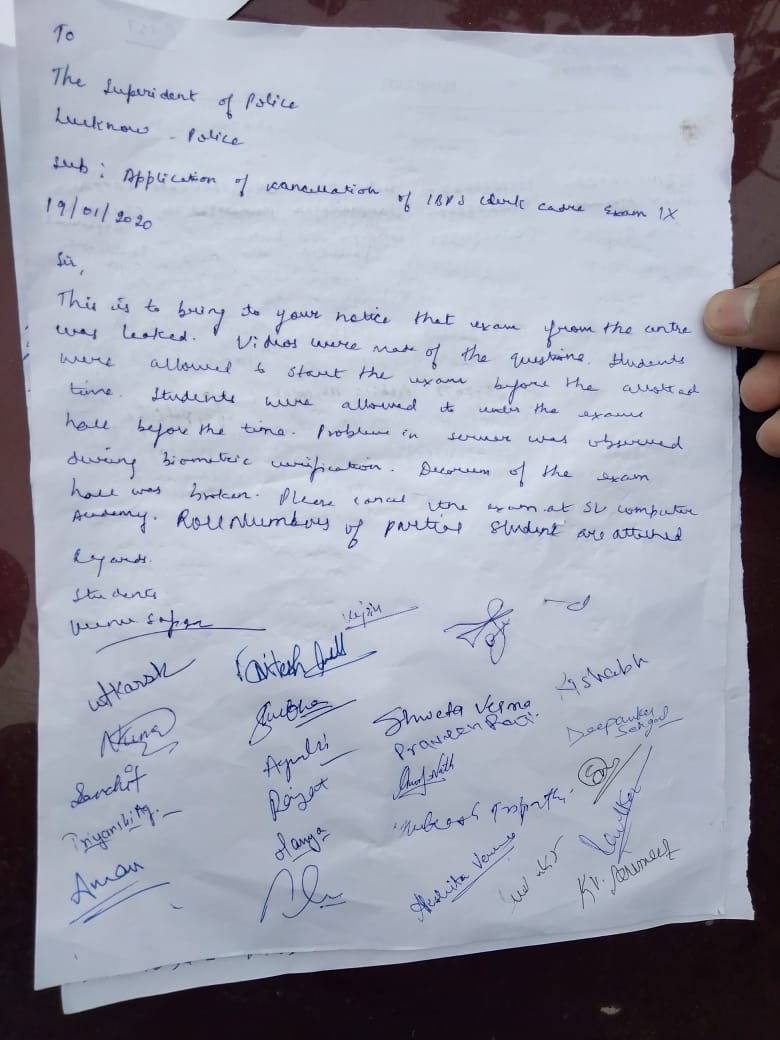 To
The Superident of Police
Lucknow - Police
Sub: Application of cancellation of IBPS clerk cadre Exam IX
19/01/2020
Sir,
This is to bring to your notice that exam from the centre
was leaked. Videos were made of the questions. Students
were allowed to start the exam before the allotted
time. Students were allowed to enter the exam
hall before the time. Problem in server was observed
during biometric verification. Decorum of the exam
hall was broken. Please cancel the exam at SV computer
Academy. Roll Numbers of partial student are attached
Regards.
Students
Utkarsh
Shweta Verma
Rishabh
Praveen
Deepankar
Sanchit
Rajat
Priyanshi
Tripathi
Aman
Verma
Kr.